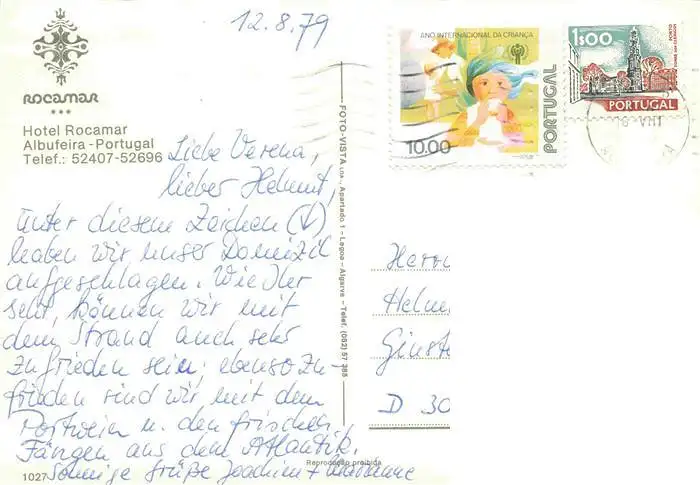 12.8.79
ANO INTERNACIONAL DA CRIANÇA
10.00
PORTUGAL
1$00
PORTO
TORRE DOS CLÉRIGOS
PORTUGAL
ROCAMAR
Hotel Rocamar
Albufeira - Portugal
Telef.: 52407-52696
Liebe Verena,
lieber Helmut,
unter diesem Zeichen (↓)
haben wir unser Domizil
aufgeschlagen. Wie Ihr
seht, können wir mit
dem Strand auch sehr
zufrieden sein; ebenso zu-
frieden sind wir mit dem
Portwein u. den frischen
Fängen aus dem Atlantik.
Sonnige Grüße Joachim + Marianne
FOTO-VISTA LDA., Apartado 1 - Lagoa - Algarve - Telef. (082) 57 388
Herrn
Helm
Ginst
D 30
Reprodução proibida
1027